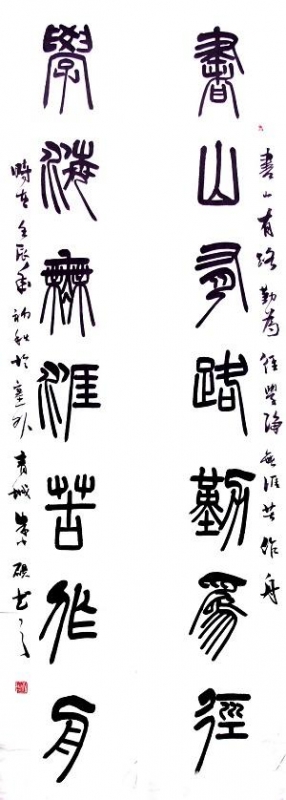 書山有路勤為徑學海無涯苦作舟
書山有路勤爲徑
學海無涯苦作舟
時在壬辰年初秋於塞外青城